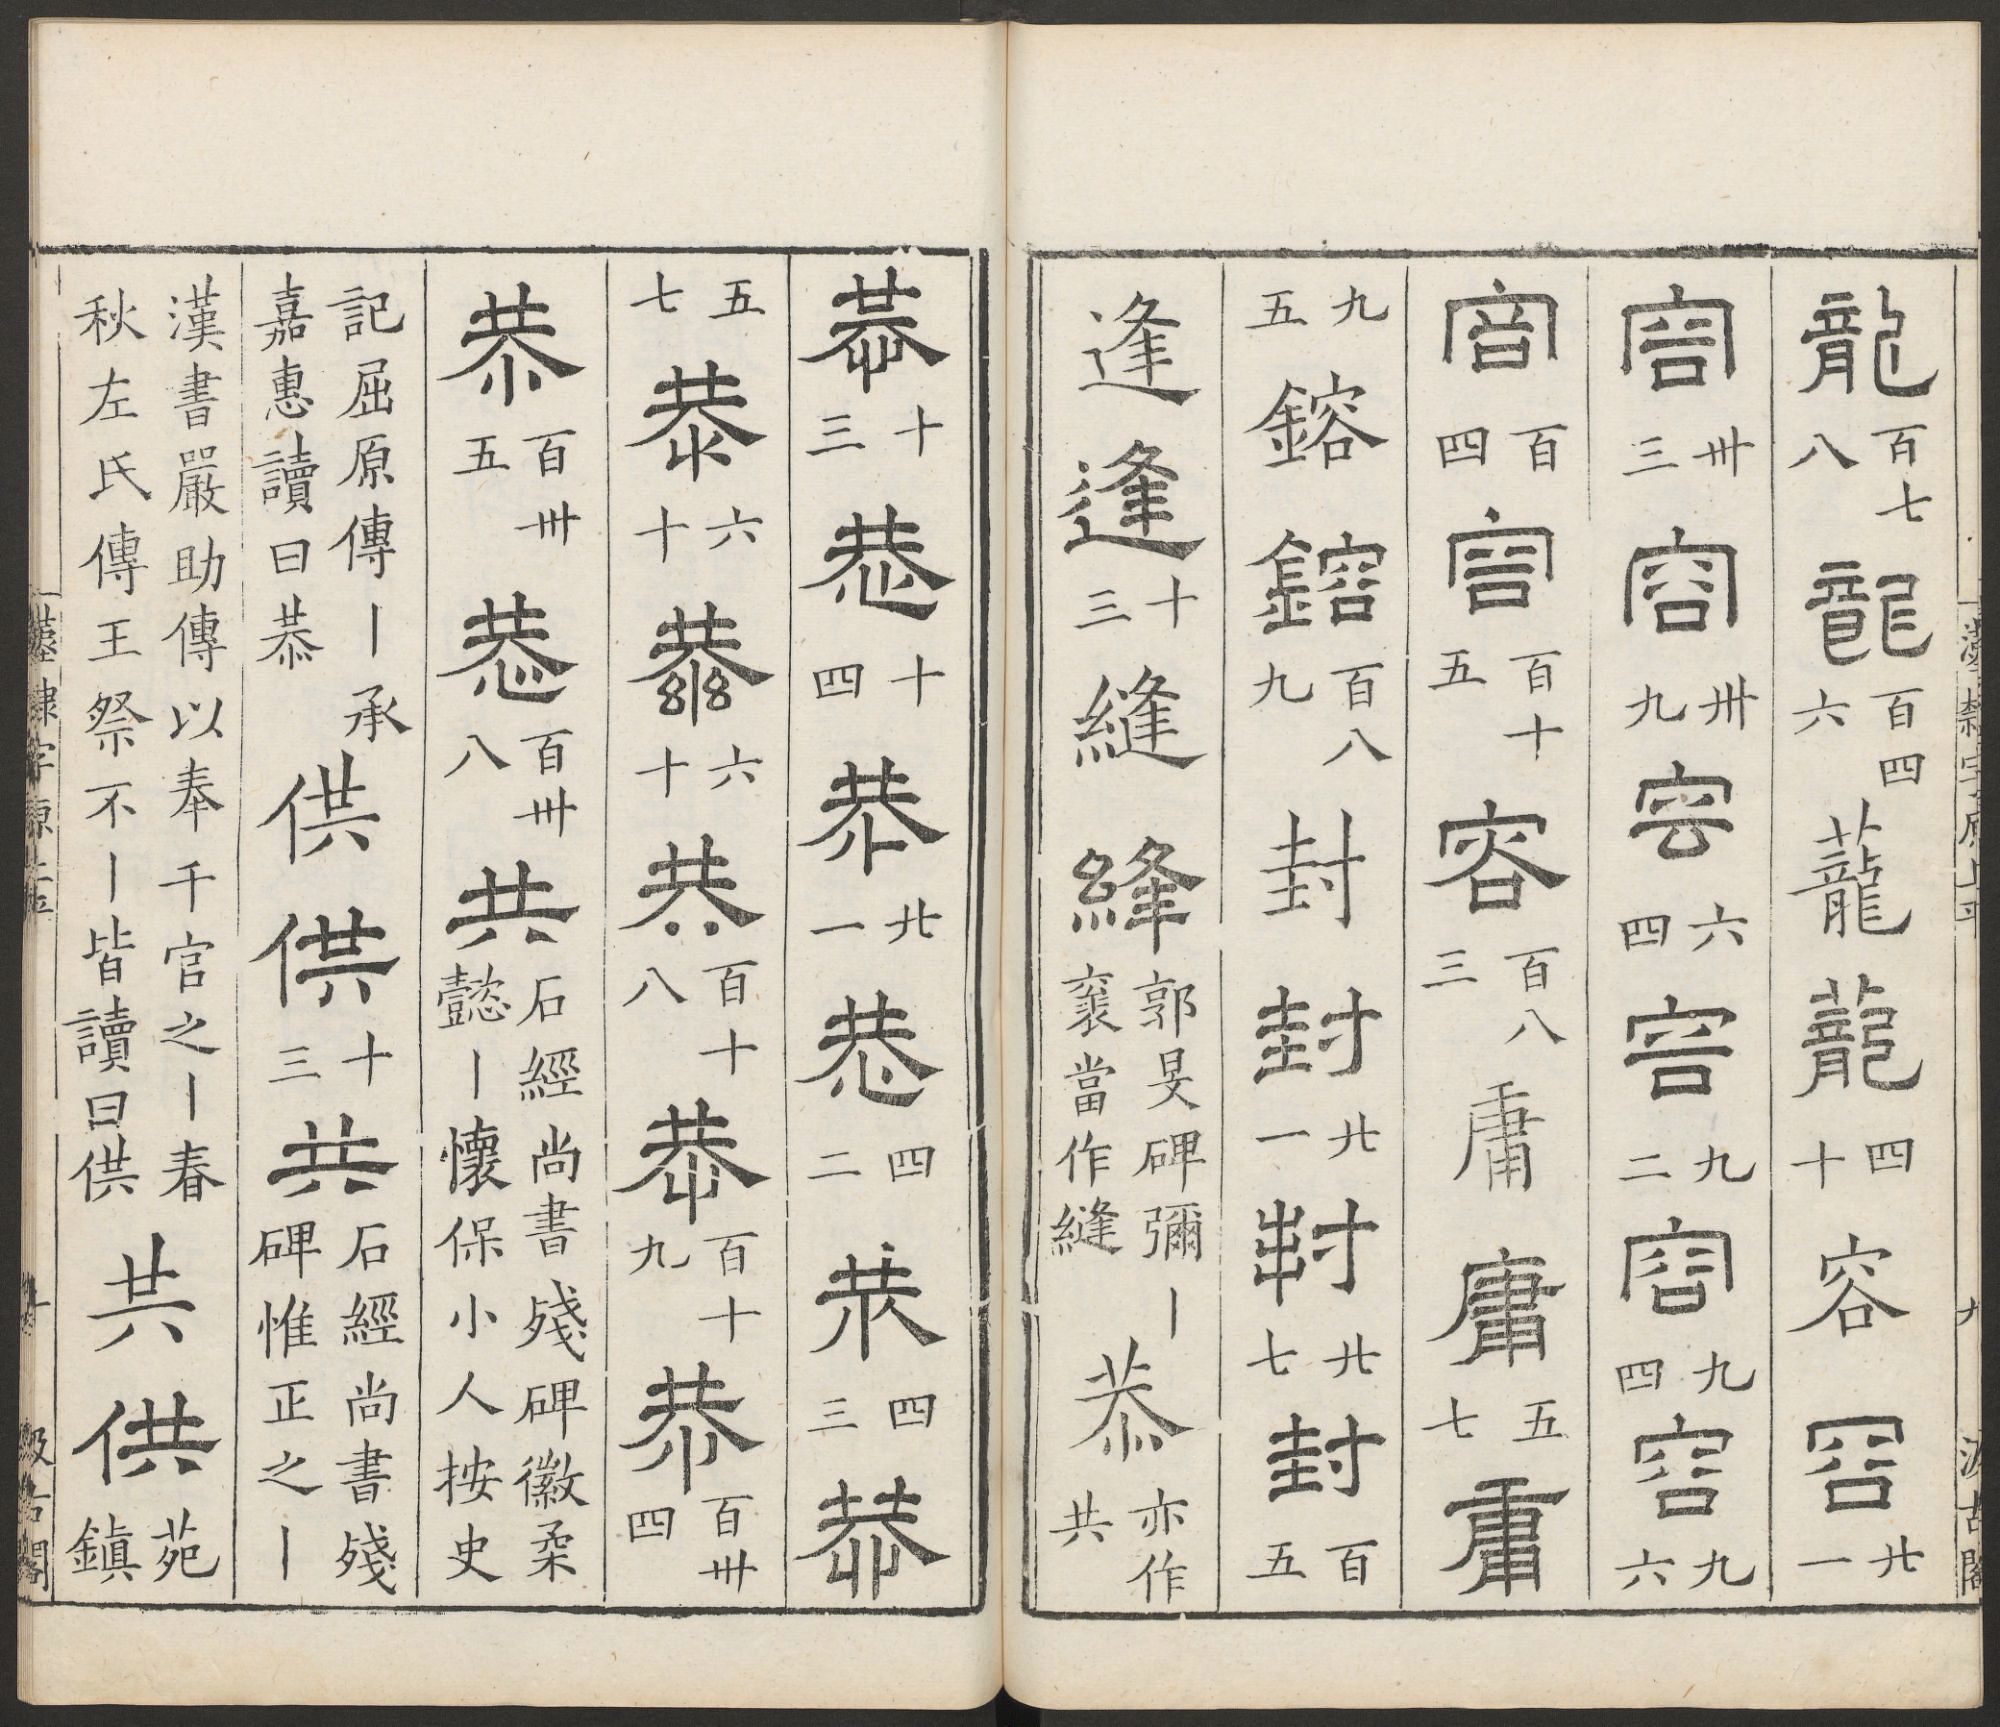 龍百七八龍百四六蘢蘢四十容容廿一
容卅三容卅九容六四容九二容九四容九六
容百四容百十五容百八三庸庸五七庸
九五鎔鎔百八九封封廿一封廿七封百五
逢逢十三縫縫郭旻碑彌丨襃當作縫恭亦作共
恭十三恭十四恭廿一恭四二恭四三恭
五七恭六十恭六十恭百十八恭百十九恭百卅四
恭百卅五恭百卅八共石經尚書殘碑徽柔懿丨懷保小人按史
記屈原傳丨承嘉惠讀曰恭供供十三共石經尚書殘碑惟正之丨
漢書嚴助傳以奉千官之丨春秋左氏傳王祭不丨皆讀曰供共供苑鎮